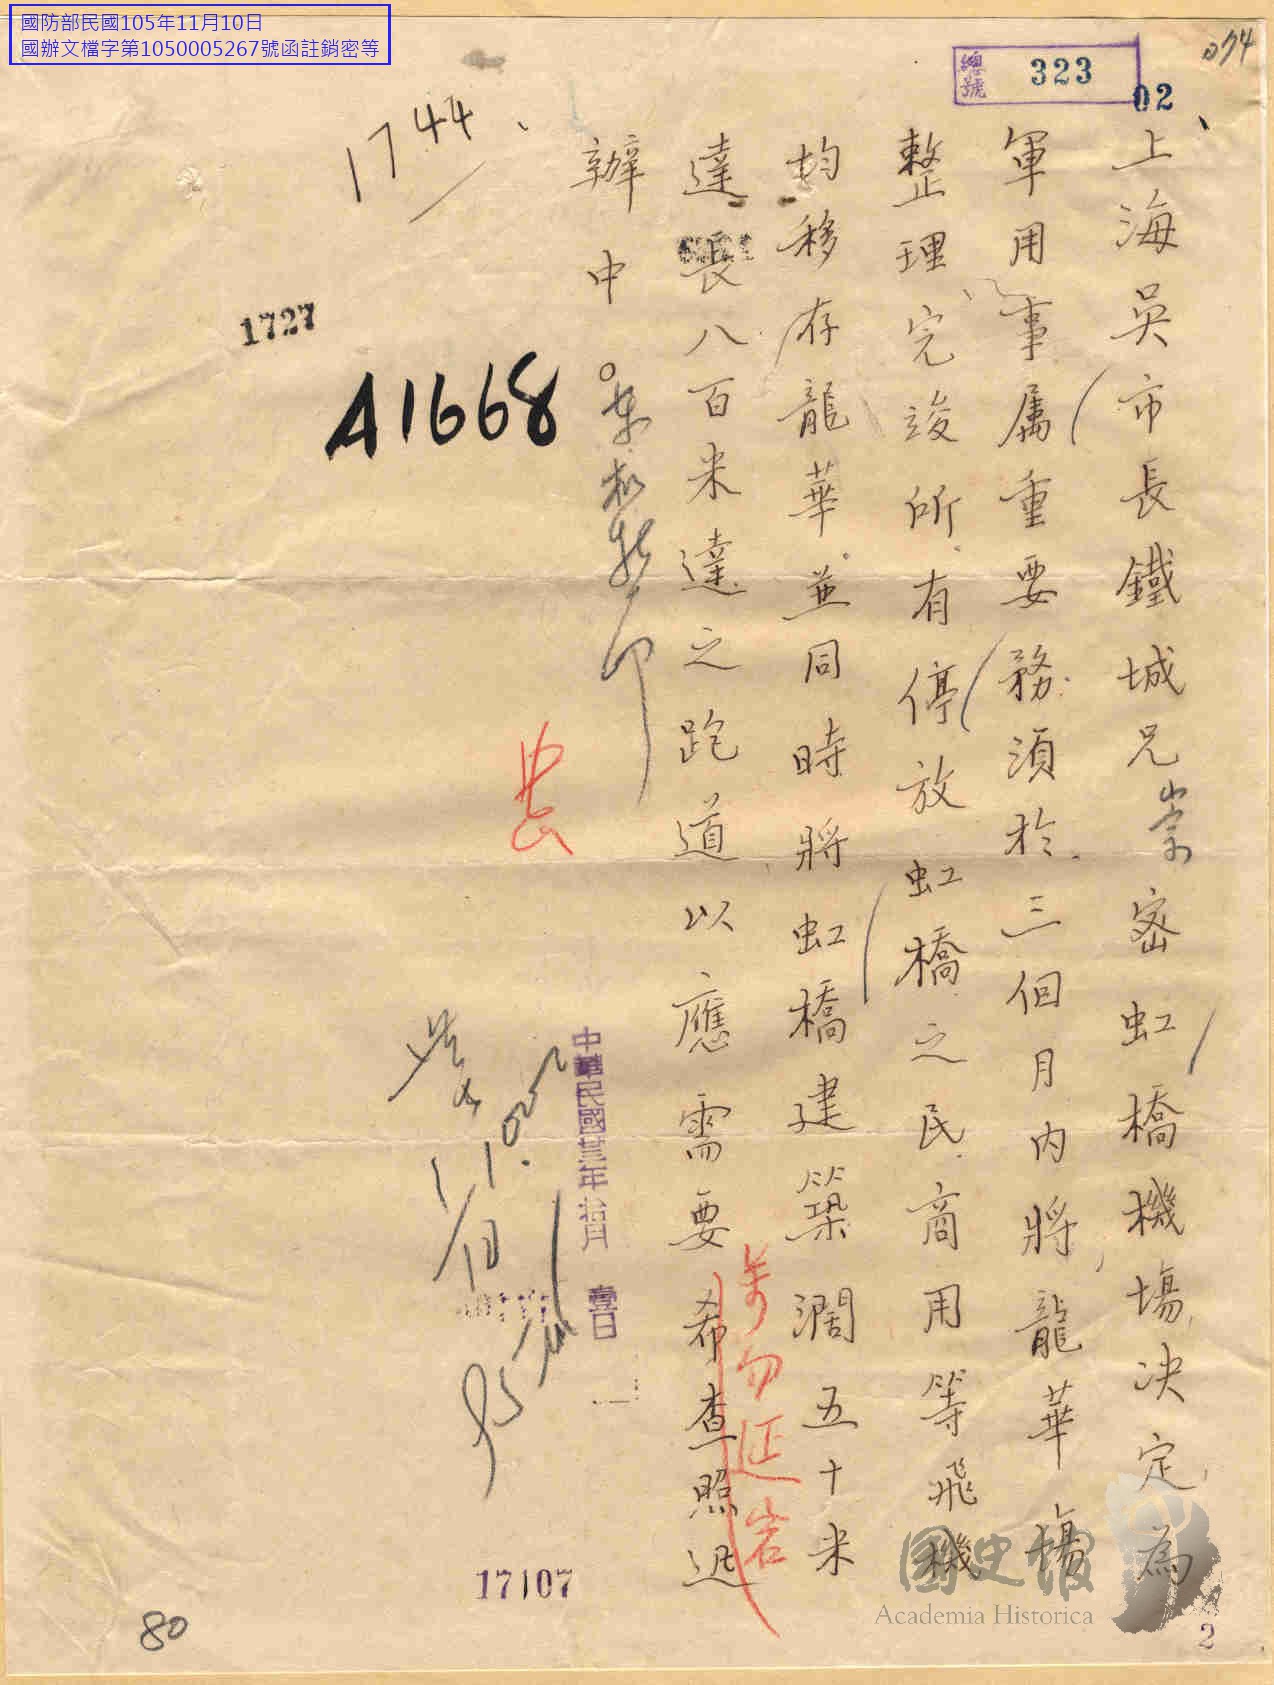 國防部民國105年11月10日
國辦文檔字第1050005267號函註銷密等
074
總號 323
02
上海吳市長鐵城兄崇密虹橋機場決定為
軍用事屬重要務須於三個月內將龍華場
整理完竣所有停放虹橋之民商用等飛機
均移存龍華並同時將虹橋建築濶五十米
達長八百米達之跑道以應需要希查照迅
辦中。
萬勿延宕
1744
1727
A1668
中華民國廿三年拾月壹日
17107
80
2
國史館
Academia Historica